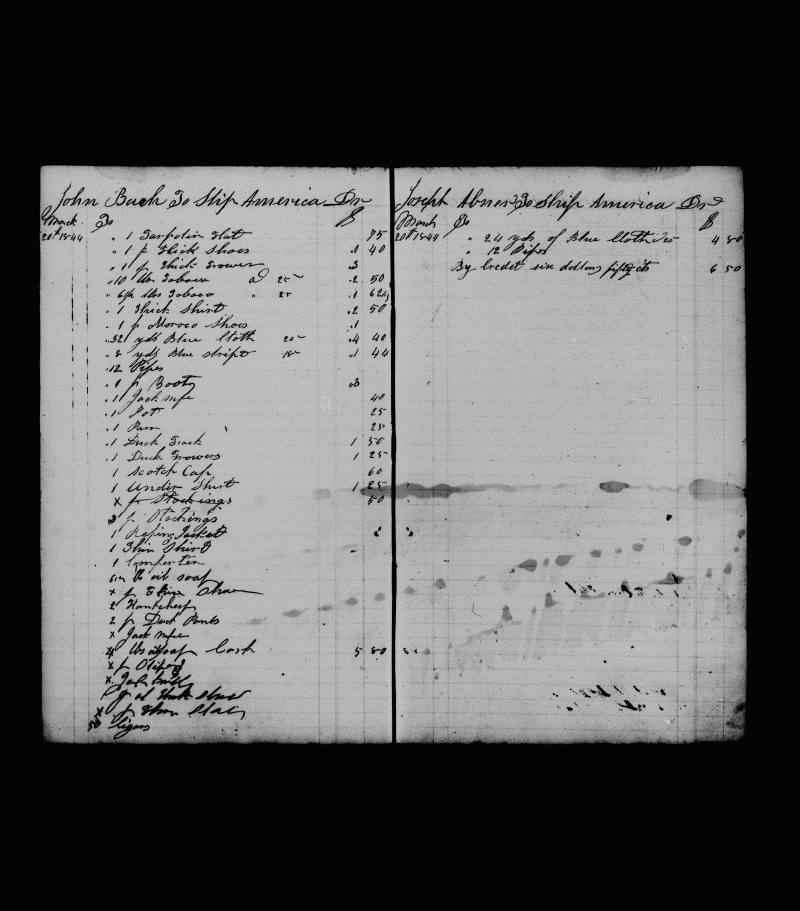 John Bach To Ship America Dr
March To $
20th 1844 " 1 Tarpolin Hatt 75
" 1 p Thick Shoes .1 40
" 1 p Thick Trowser .3
" 10 lbs Tobaco ad 25 .2 50
" 6½ lbs Tobaco " 25 .1 62½
" 1 Thick Shirt .2 50
" 1 p Moroco Shoes .1
" 22 yds Blue Cloth 20 .4 40
" 8 yds Blue stript 18 .1 44
" 12 Pipes
" 1 p Boots .3
.1 Jack nife 40
.1 Pot 25
.1 Pan 25
.1 Duck Frock 1 50
.1 Duck Trowers 1 25
1 Scotch Cap 60
1 Under Shirt 1 25
x pr Stockings 50
3 p Stockings
1 Jacket
1 Thin Shirt
1
lb oil soap
x p Thin Shoes
2 Hantcheif
2 p Duck Pants
x Jack nife
x lbs Soap Cash 5 80
x p
x Jack nife
p Thick Shoes
x p Thin
50 Sigars
Joseph Abner To Ship America Dr
March To $
20th 1844 " 24 yds of Blue Cloth 20 4 80
" 12 Pipes
By Credit six dollars fifty cts 6 50